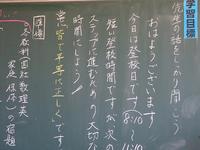 学習目標
先生の話をしっかり聞こう
おはようございます
今日は登校日です 8:10〜
短い登校時間ですが次の
ステップに進むための大切な
時間にしよう!
常に皆で平等に正しくです
準備
冬教材(国社数理英
家庭 保体)の宿題